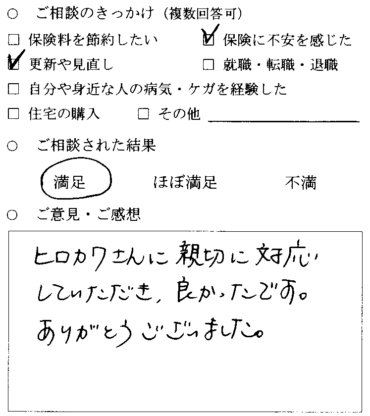 ○ ご相談のきっかけ（複数回答可）
□ 保険料を節約したい ☑ 保険に不安を感じた
☑ 更新や見直し □ 就職・転職・退職
□ 自分や身近な人の病気・ケガを経験した
□ 住宅の購入 □ その他
○ ご相談された結果
満足 ほぼ満足 不満
○ ご意見・ご感想
ヒロカワさんに親切に対応
していただき、良かったです。
ありがとうございました。